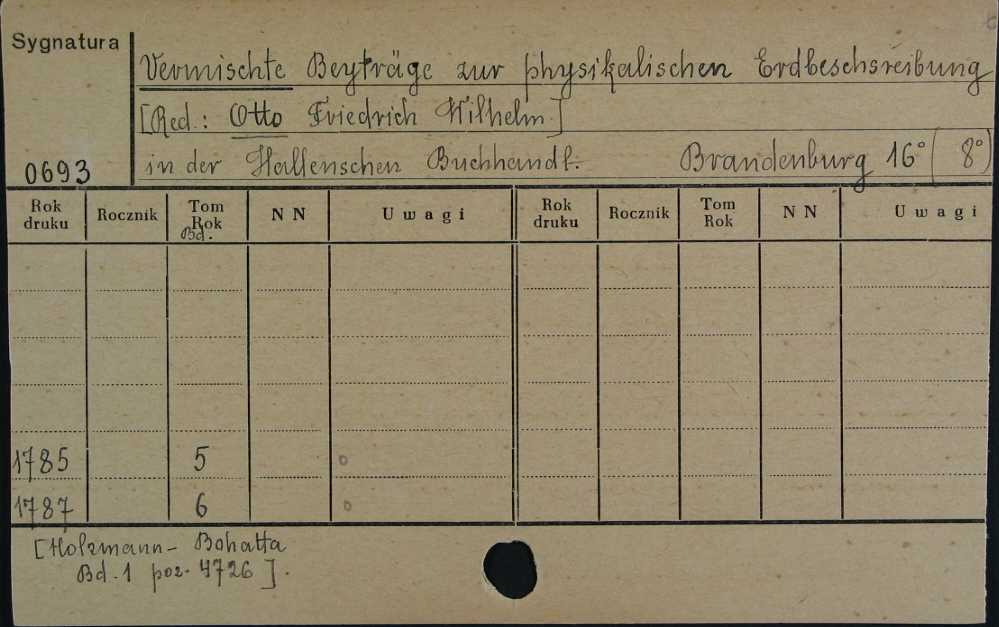 Sygnatura
Vermischte Beyträge zur physikalischen Erdbeschsreibung
[Red.: Otto Friedrich Wilhelm.]
0693 in der Hallenschen Buchhandl. Brandenburg 16° ( 8°)
Rok druku Rocznik Tom Rok Bd. N N Uwagi Rok druku Rocznik Tom Rok N N Uwagi
1785 5 o
1787 6 o
[Holzmann - Bohatta
Bd. 1 poz. 4726].